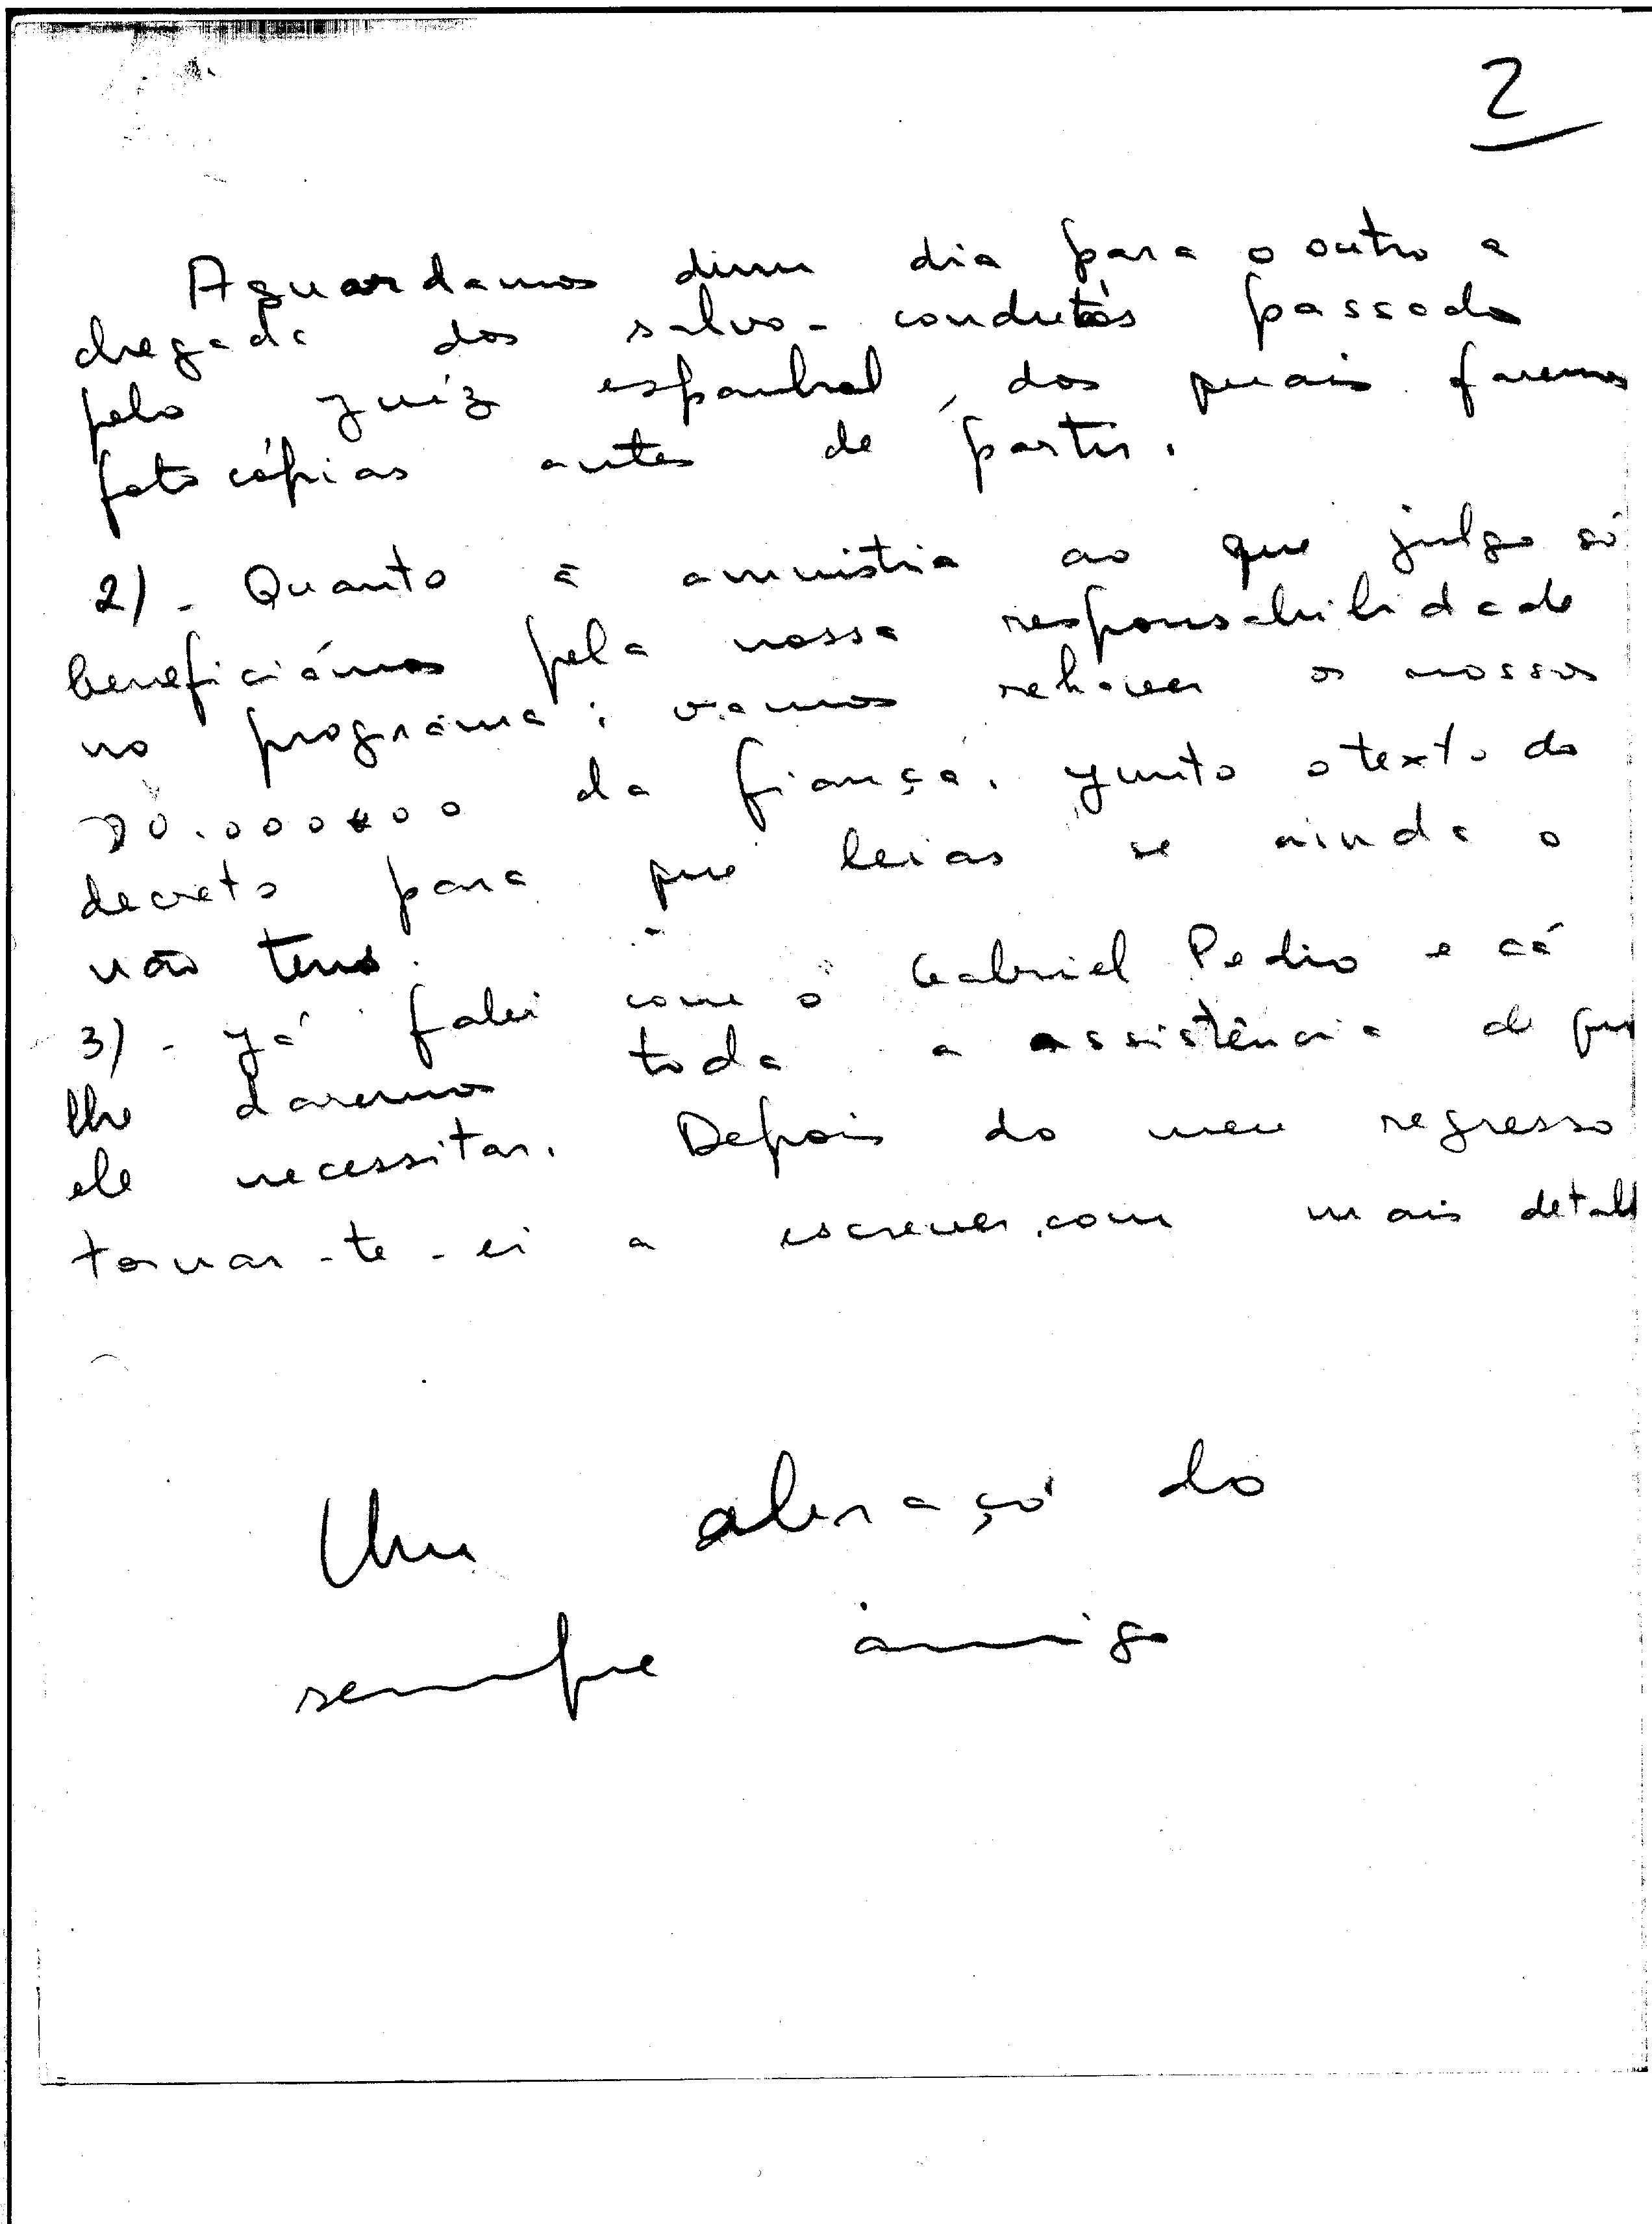 2
Aguardamos dum dia para o outro a
chegada dos salvo-condutos passados
pelo juíz espanhol, dos quais faremos
fotocópias antes de partir.
2) - Quanto à amnistia ao que julgo só
beneficiámos pela nossa responsabilidade
no programa: vamos rehaver os nossos
da fiança. Junto o texto do
decreto para que leias se ainda o
não tens.
3) - Já falei com o Gabriel Pedro e cá
lhe daremos toda a assistência de que
ele necessitar. Depois do meu regresso
tornar-te-ei a escrever com mais detalh
Um abraço do
sempre amigo